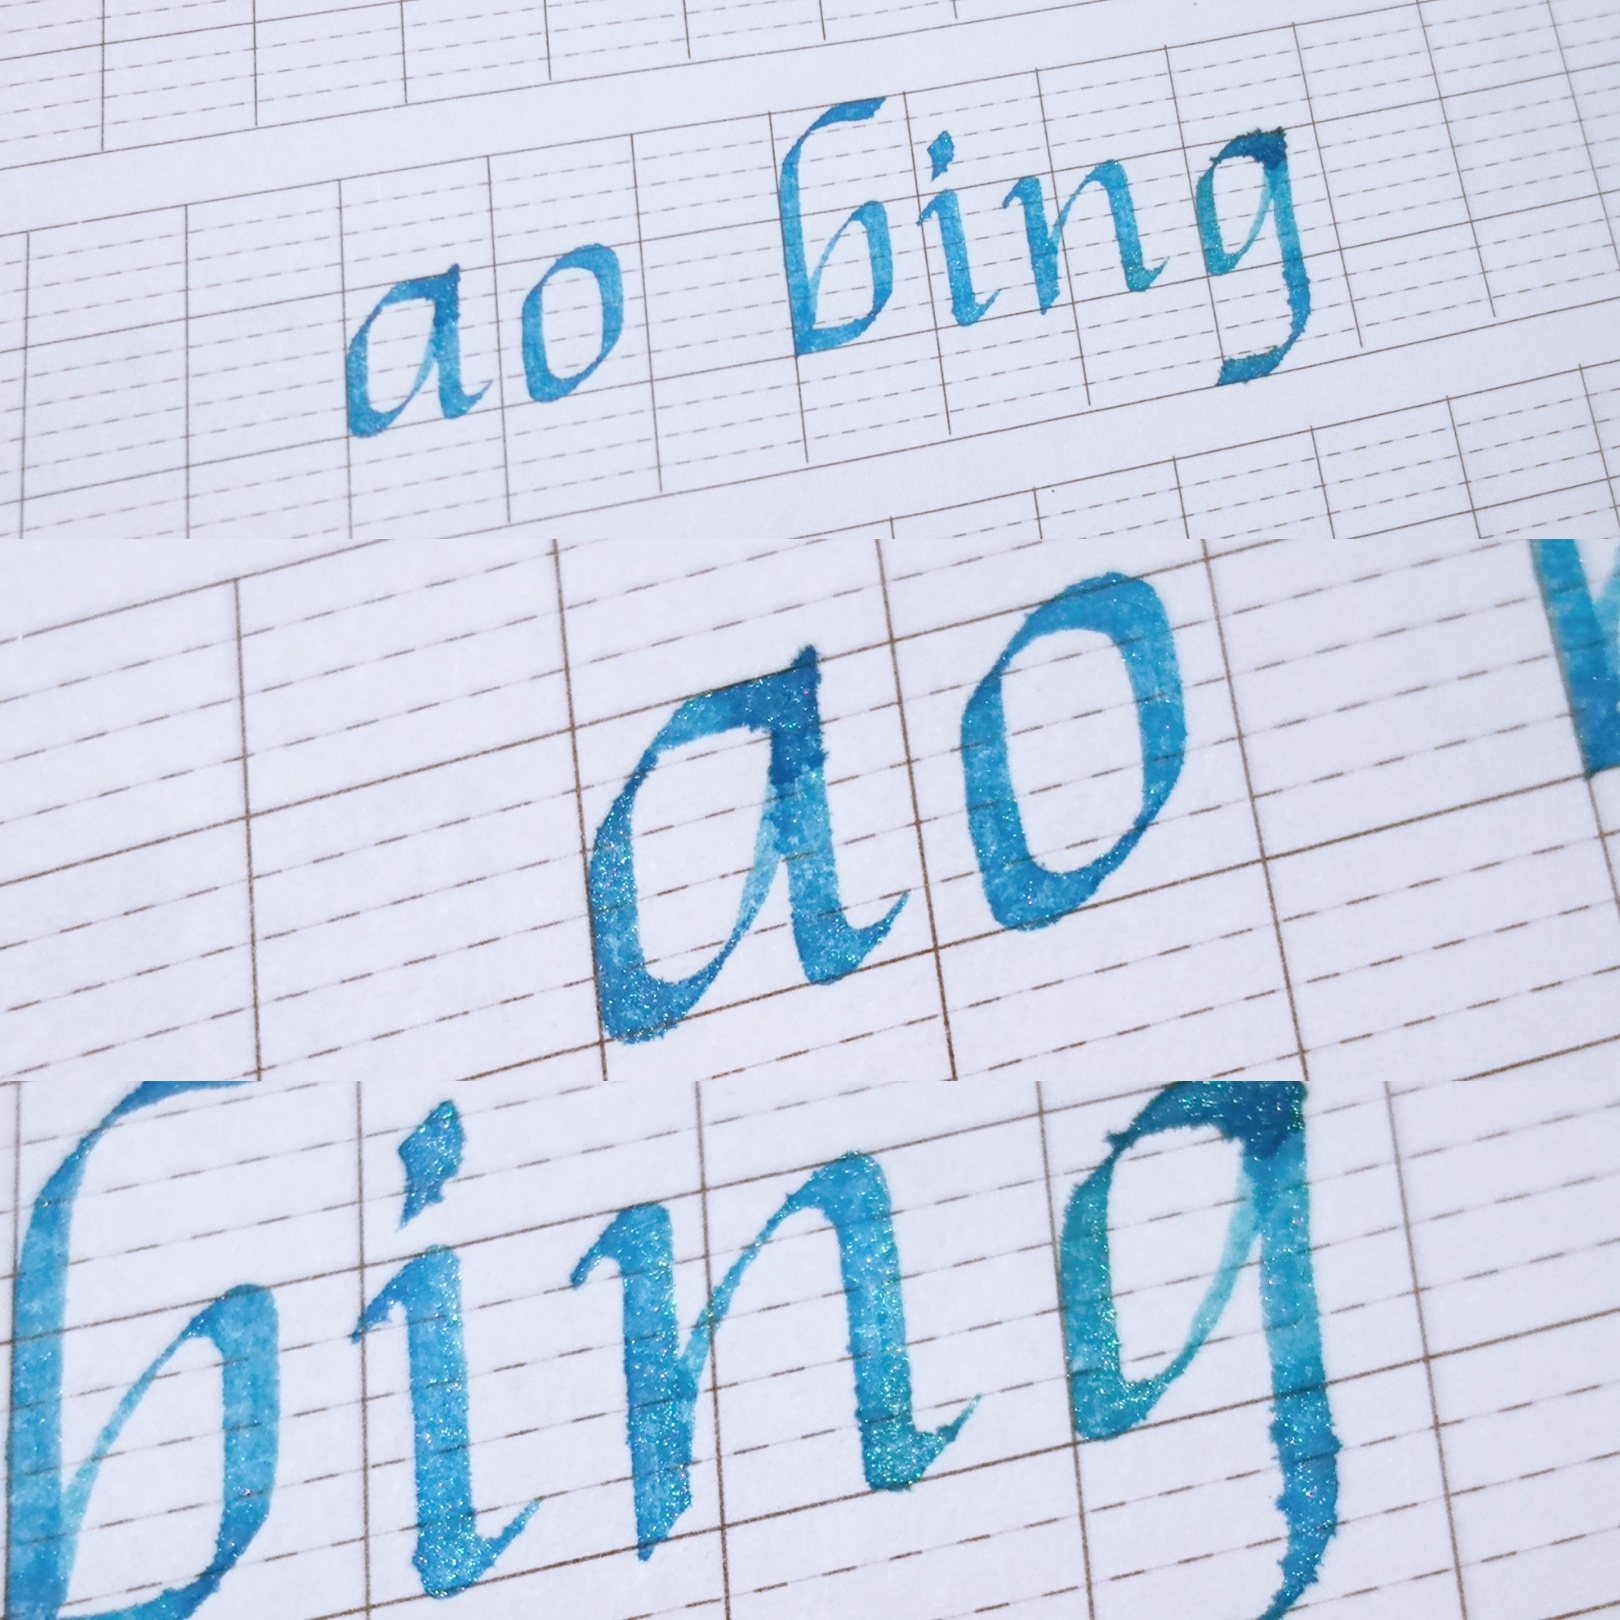 ao bing
ao
bing